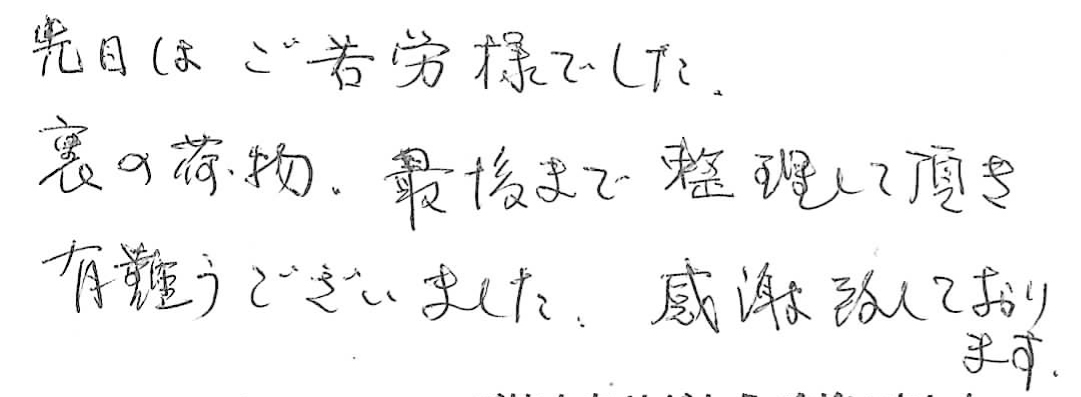 先日は ご苦労様でした.
裏の荷物、最後まで 整理して頂き
有難うございました. 感謝致しており
ます.